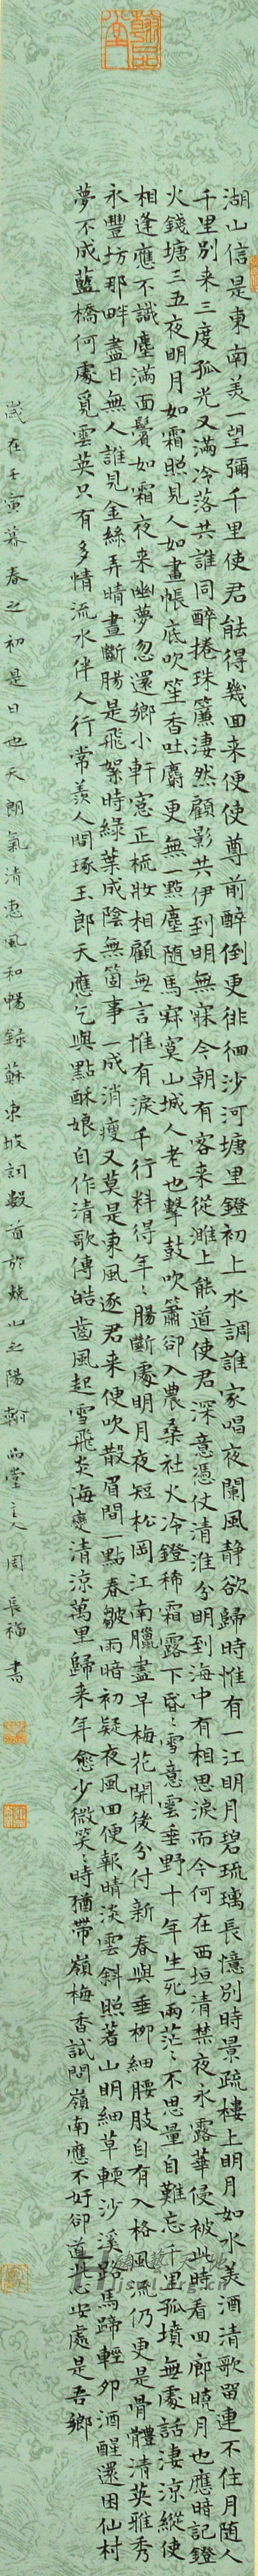 湖山信是東南美一望彌千里使君能得幾回来便使尊前醉倒更徘徊沙河塘里鐙初上水調誰家唱夜闌風静欲歸時惟有一江明月碧琉璃長憶別時景疏樓上明月如水美酒清歌留連不住月隨人
千里別来三度孤光又滿冷落共誰同醉捲珠簾淒然顧影共伊到明無寐今朝有客来從濉上能道使君深意憑仗清淮分明到海中有相思淚而今何在西垣清禁夜永露華侵被此時看回廊曉月也應暗記鐙
火錢塘三五夜明月如霜照見人如畫帳底吹笙香吐麝更無一點塵隨馬寂寞山城人老也擊鼓吹簫卻入農桑社火冷鐙稀霜露下昏〻雪意雲垂野十年生死兩茫〻不思量自難忘千里孤墳無處話淒涼縱使
相逢應不識塵滿面鬢如霜夜来幽夢忽還鄉小軒窓正梳妝相顧無言惟有淚千行料得年〻腸斷處明月夜短松岡江南臘盡早梅花開後分付新春與垂柳細腰肢自有入格風流仍更是骨體清英雅秀
永豐坊那畔盡日無人誰見金絲弄晴晝斷腸是飛絮時綠葉成陰無箇事一成消瘦又莫是東風逐君来便吹散眉間一點春皺雨暗初疑夜風回便報晴淡雲斜照著山明細草輭沙溪路馬蹄輕卯酒醒還困仙村
夢不成藍橋何處覓雲英只有多情流水伴人行常羨人間琢玉郎天應乞與點酥娘自作清歌傳皓齒風起雪飛炎海變清涼萬里歸来年愈少微笑〻時猶帶嶺梅香試問嶺南應不好卻道此心安處是吾鄉
歲在壬寅暮春之初是日也天朗氣清惠風和暢錄蘇東坡詞數首於山之陽翰堂主人周長福書